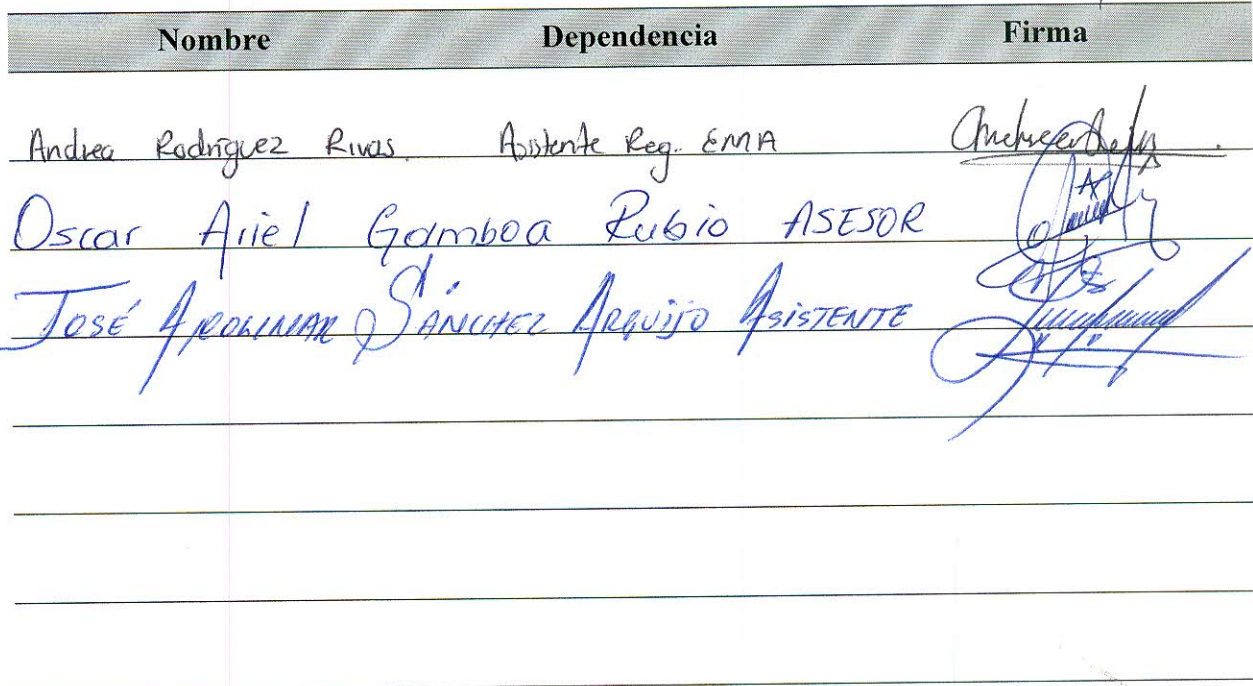 Nombre Dependencia Firma
Andrea Rodríguez Rivas. Asistente Reg. EMA
Oscar Ariel Gamboa Rubio ASESOR
JOSÉ APOLINAR SÁNCHEZ ARQUIJO ASISTENTE